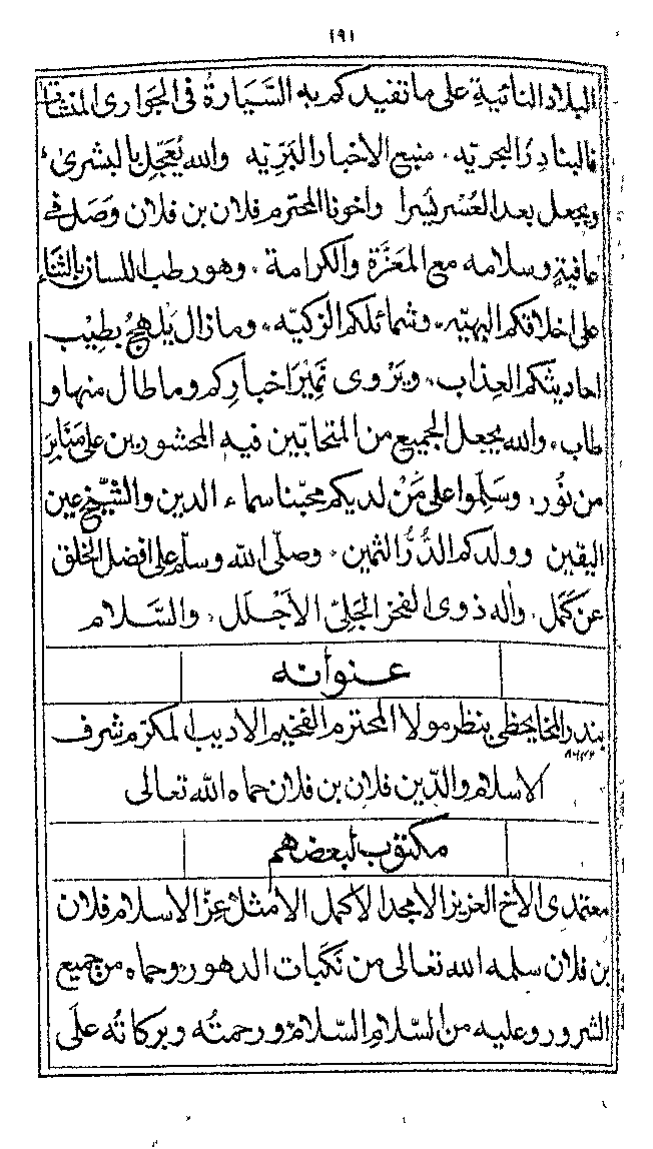 ١٩١
البلاد النائية على ما تفيدكم به السَّيَارةُ فى الجَوارى المنشآت
فالبنادِرُ البحريّه، منبع الأخبار البَرّيّه والله يُعَجّل بالبشرى،
ويجعل بعد العُسْر يُسرا وأخونا المحترم فلان بن فلان وَصَل فى
عافيةٍ وسلامه مع المعَزَّة والكرامة، وهو رطب اللسان بالثناء
على اخلاقكم البهيّه، وشمائلكم الزكيّه، وما زال يَلهجُ بطِيْب
احاديثكم العِذاب، ويَرْوى نَمِيْرَ اخبارِكم وما طال منها و
طاب، والله يجعل الجميع من المتحابّين فيه المحشورين على مَنَابِرَ
من نُور، وسَلِّموا على مَنْ لديكم محبّنا سماء الدين والشيخ عين
اليقين وولدكم الدُّرُّ الثمين، وصلّى الله وسلّم على افضل الخلق
عن كَمَل، وآله ذوى الفخر الجَلِىّ الأجْلَل، والسَّلام
عنوانه
بندر المخا يحظى بنظر مولانا المحترم الفخيم الأديب المكرّم شرف
الاسلام والدّين فلان بن فلان حماه الله تعالى
مكتوب لبعضهم
معتمدى الأخ العزيز الامجد الاكمل الامثل عزّ الاسلام فلان
بن فلان سلمه الله تعالى من نَكَبات الدهور وحماه من جميع
الشرور وعليه من السّلام السّلام ورحمتُه وبركاتُه علَى